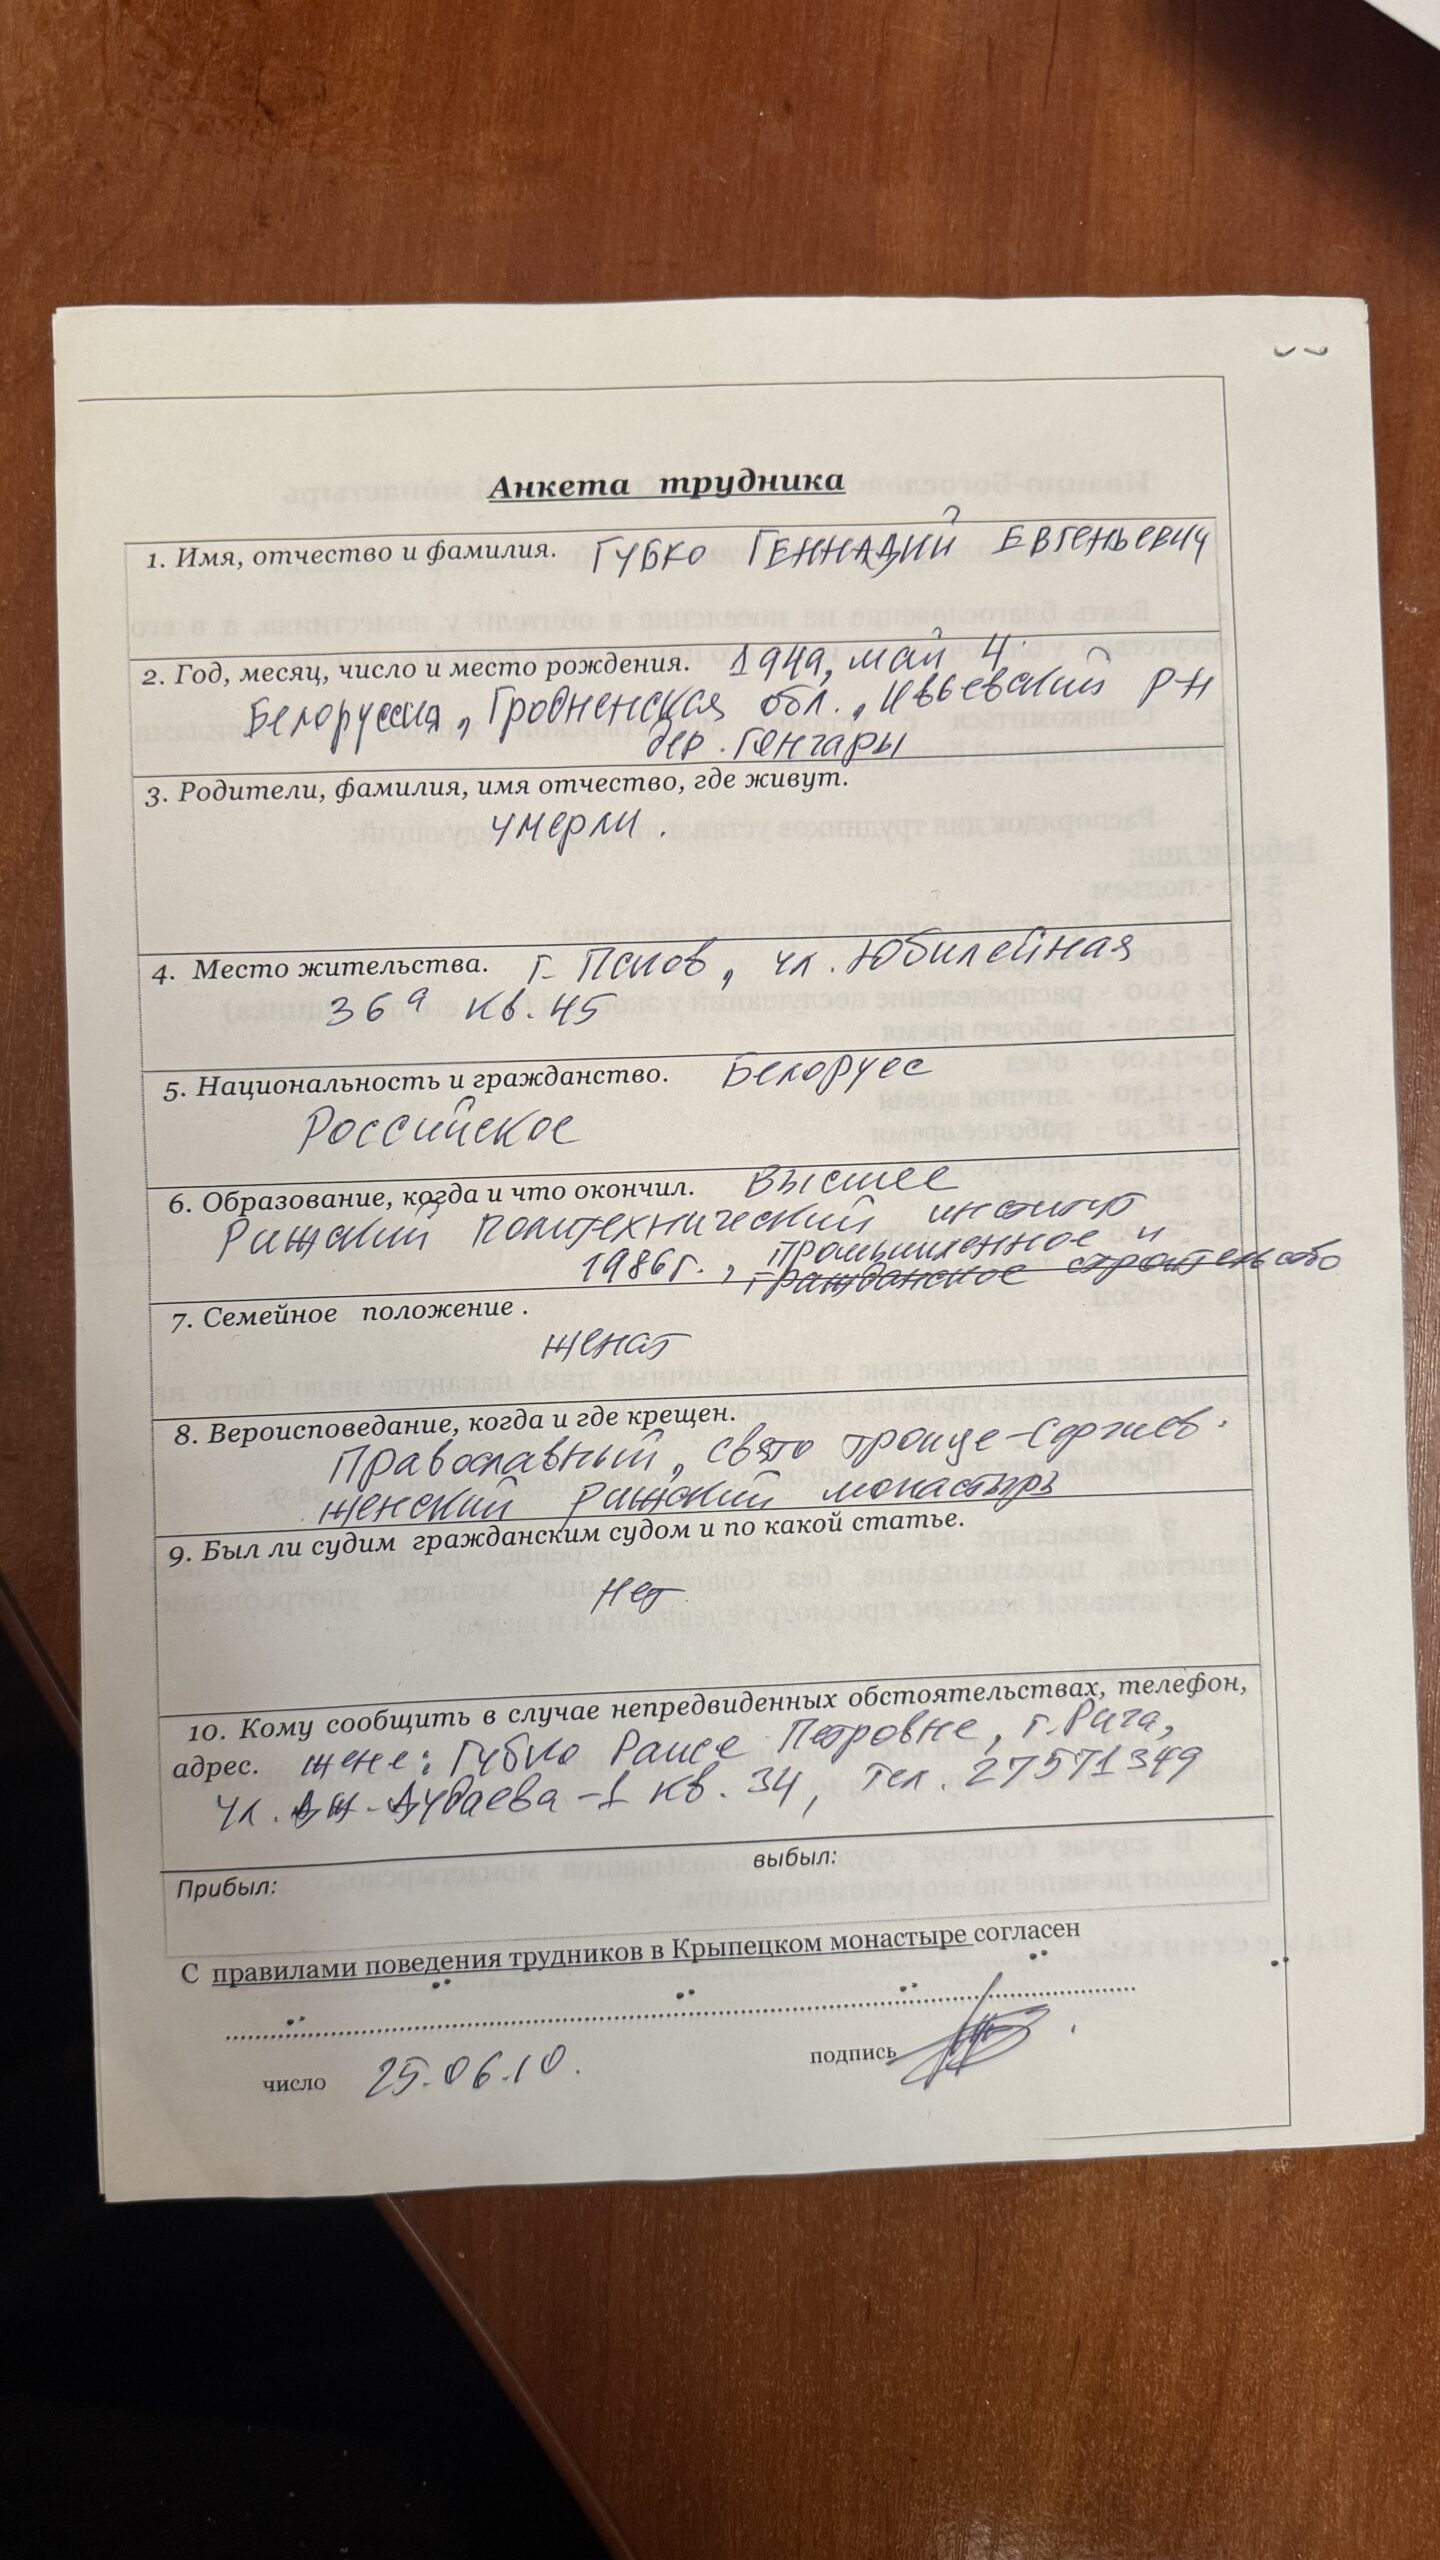 Анкета трудника
1. Имя, отчество и фамилия. ГУБКО ГЕННАДИЙ ЕВГЕНЬЕВИЧ
2. Год, месяц, число и место рождения. 1949, май 4.
Белоруссия, Гродненская обл., Ивьевский р-н
дер. Генчары
3. Родители, фамилия, имя отчество, где живут.
умерли.
4. Место жительства. г. Псков, ул. Юбилейная
36а кв. 45
5. Национальность и гражданство. Белорусс
Российское
6. Образование, когда и что окончил. Высшее
Рижский политехнический институт
1986г., промышленное и
гражданское строительство
7. Семейное положение.
женат
8. Вероисповедание, когда и где крещен.
Православный, свято троице-Сергиев.
женский рижский монастырь
9. Был ли судим гражданским судом и по какой статье.
нет
10. Кому сообщить в случае непредвиденных обстоятельствах, телефон,
адрес. жене: Губко Раисе Петровне, г. Рига,
ул. Дж. Дудаева-1 кв. 34, тел. 27571349
выбыл:
Прибыл:
С правилами поведения трудников в Крыпецком монастыре согласен
число 25.06.10. подпись